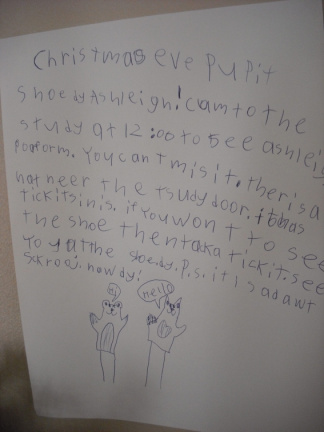 Christmas eve pupit
shoe by Ashleigh! cam to the
study at 12:00 to see ashleig
poform. you cant mis it. ther is a
hat neer the tsudy door. it has
tickits in is. if you wont to see
the shoe then taka tickit. see
yo yat the shoe by. P.s. it is adawt
Skroej. now dy!
hi
hello